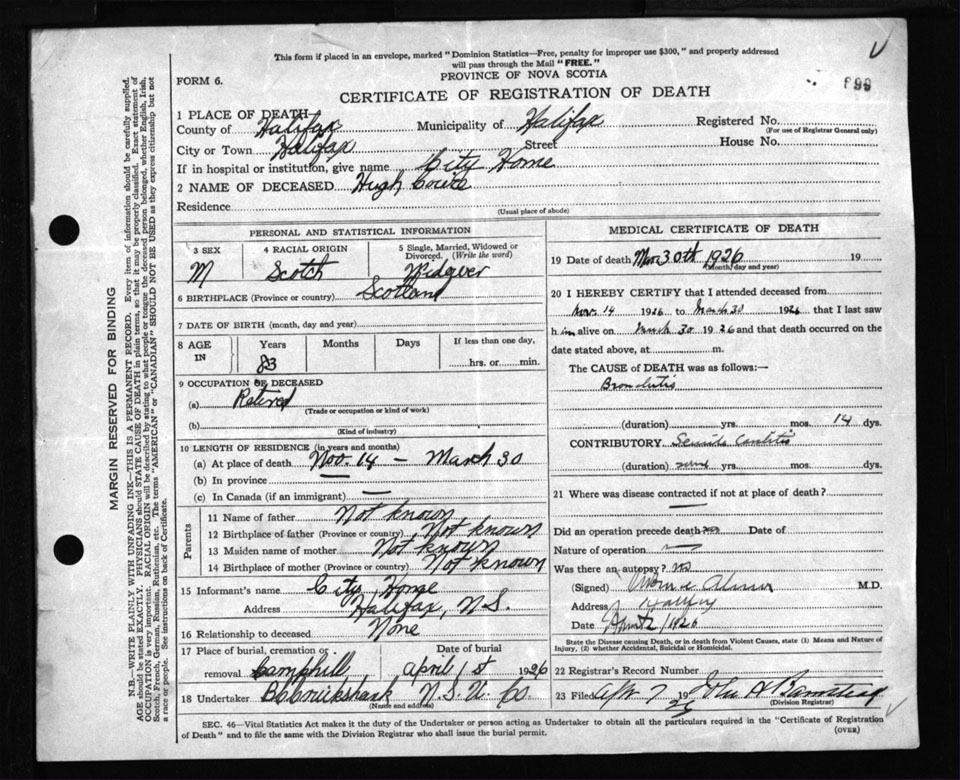 This form if placed in an envelope, marked "Dominion Statistics—Free, penalty for improper use $300," and properly addressed
will pass through the Mail "FREE."
PROVINCE OF NOVA SCOTIA
FORM 6.
CERTIFICATE OF REGISTRATION OF DEATH
1 PLACE OF DEATH
County of Halifax Municipality of Halifax Registered No.
(For use of Registrar General only)
City or Town Halifax Street House No.
If in hospital or institution, give name City Home
2 NAME OF DECEASED Hugh
Residence
(Usual place of abode)
PERSONAL AND STATISTICAL INFORMATION
3 SEX 4 RACIAL ORIGIN 5 Single, Married, Widowed or
Divorced. (Write the word)
M Scotch
6 BIRTHPLACE (Province or country) Scotland
7 DATE OF BIRTH (month, day and year)
8 AGE IN Years Months Days If less than one day,
83 hrs. or min.
9 OCCUPATION OF DECEASED
(a) Retired
(Trade or occupation or kind of work)
(b)
(Kind of industry)
10 LENGTH OF RESIDENCE (in years and months)
(a) At place of death Nov. 14 — March 30
(b) In province —
(c) In Canada (if an immigrant) —
Parents
11 Name of father Not known
12 Birthplace of father (Province or country) Not known
13 Maiden name of mother Not known
14 Birthplace of mother (Province or country) Not known
15 Informant's name City Home
Address Halifax, N.S.
16 Relationship to deceased None
17 Place of burial, cremation or Date of burial
removal Camphill April 1st 1926
18 Undertaker N.S.U. Co.
(Name and address)
MEDICAL CERTIFICATE OF DEATH
19 Date of death Mar 30th 1926 19
(Month, day and year)
20 I HEREBY CERTIFY that I attended deceased from
Nov. 14 1926 to March 30 1926 that I last saw
h im alive on March 30 1926 and that death occurred on the
date stated above, at m.
The CAUSE of DEATH was as follows:—
Bronchitis
(duration) yrs. mos. 14 dys.
CONTRIBUTORY Senile
(duration) yrs. mos. dys.
21 Where was disease contracted if not at place of death?
—
Did an operation precede death Date of
Nature of operation —
Was there an autopsy? no
(Signed) M.D.
Address Halifax
Date 1926
State the Disease causing Death, or in death from Violent Causes, state (1) Means and Nature of
Injury, (2) whether Accidental, Suicidal or Homicidal.
22 Registrar's Record Number
23 Filed 7 19 26 John A
(Division Registrar)
SEC. 46—Vital Statistics Act makes it the duty of the Undertaker or person acting as Undertaker to obtain all the particulars required in the "Certificate of Registration
of Death" and to file the same with the Division Registrar who shall issue the burial permit.
(OVER)
MARGIN RESERVED FOR BINDING
N.B.—WRITE PLAINLY WITH UNFADING INK—THIS IS A PERMANENT RECORD. Every item of information should be carefully supplied.
AGE should be stated EXACTLY. PHYSICIANS should STATE CAUSE OF DEATH in plain terms, so that it may be properly classified. Exact statement of
OCCUPATION is very important. RACIAL ORIGIN will be described by stating to what people or tongue the deceased person belonged, whether English, Irish,
Scotch, French, German, Russian, Ruthenian, etc. The terms "AMERICAN" or "CANADIAN" SHOULD NOT BE USED as they express citizenship but not
a race or people. See instructions on back of Certificate.